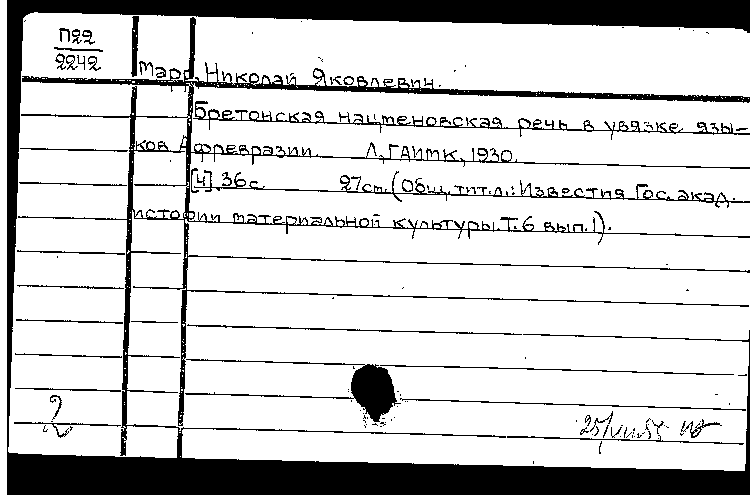 П22
2242
Марр, Николай Яковлевич.
Бретонская нацменовская речь в увязке язы-
ков Афревразии. Л., ГАИМК, 1930.
[4], 36с. 27см. (Общ. тит. л.: Известия Гос. акад.
истории материальной культуры. Т. 6 вып. 1).
2
25/VIII 55